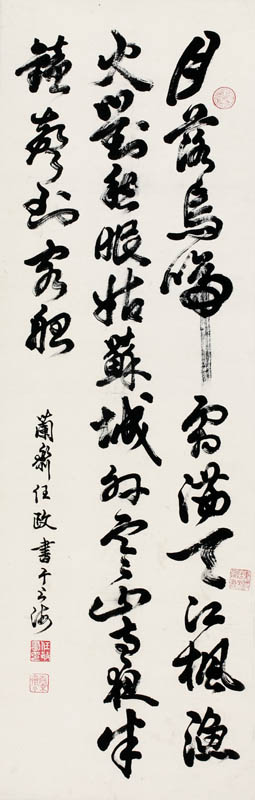 月落烏啼霜滿天江楓漁
火對愁眠姑蘇城外寒山寺夜半
鐘聲到客船
蘭齋任政書于上海